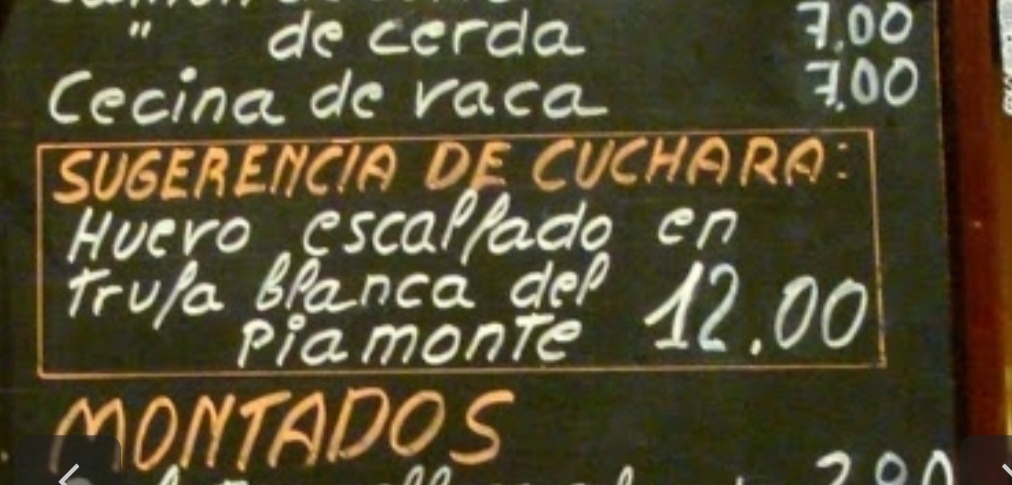 " de cerda 7.00
Cecina de vaca 7.00
SUGERENCIA DE CUCHARA:
Huevo escalfado en
trufa blanca del
Piamonte 12.00
MONTADOS